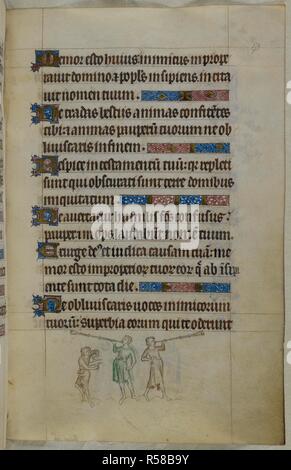 Memor esto huius inimicus inprope
rauit domino: a popls insipiens incita
uit nomen tuum.
Ne tradas bestiis animas confitetes
tibi: a animas pauperu tuorum ne ob
liuiscaris in finem.
Respice in testamentu tuu: qr repleti
sunt qui obscurati sunt terre domibus
iniquitatu
Ne auertatur humilis fcs confusus:
pauper inops laudabut nomen tuum.
Exurge ds et iudica causam tuam: me
mor esto improperior tuor eor q ab isipi
ente sunt tota die.
Ne obliuiscaris uoces inimicorum
tuoru: superbia eorum qui te oderunt
alamy
Image ID: R58B9Y
www.alamy.com